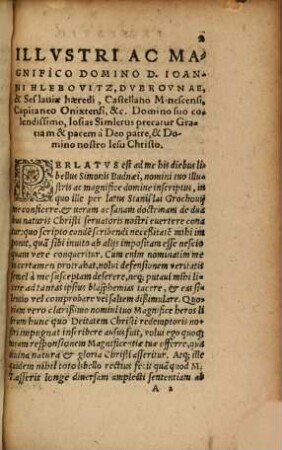 2
ILLVSTRI AC MA-
GNIFICO DOMINO D. IOAN-
NI HLEBOVITZ, DVBROVNAE,
& Seslauiæ hæredi, Castellano Minescensi,
Capitaneo Onixtensi, &c. Domino suo co-
lendissimo, Iosias Simlerus precatur Gra-
tiam & pacem à Deo patre, & Do-
mino nostro Iesu Christo.
PERLATVS est ad me his diebus li-
bellus Simonis Budnæi, nomini tuo il-
lustris ac magnifice domine inscriptus, in
quo ille per latus Stanislai Grochouij
me conficere, & ueram ac sanam doctrinam de dua
bus naturis Christi seruatoris nostri euertere cona
tur, quo scripto eonde scribendi necessitatẽ mihi im
ponit, quã sibi inuito ab alijs impositam esse nescio
quam vere conqueritur. Cum enim nominatim me
in certamen protrahat, nolui defensionem veritatis
à me susceptam deserere, neq; putaui mihi li-
ad tantas ipsius blasphemias tacere, & eas si-
lentio vel comprobare vel saltem dissimulare. Quo
niam vero clarissimo nomini tuo Magnifice heros li
brum hunc quo Deitatem Christi redemptoris no-
stri impugnat inscribere ausus fuit, volui ego quoq;
meam responsionem Magnificentiæ tuæ offerre, qua
diuina natura & gloria Christi asseritur. Atq; ille
quidem nihil toto libello rectius fecit quã quod M.
T. asserit longe diuersam amplecti sententiam ab
A 2